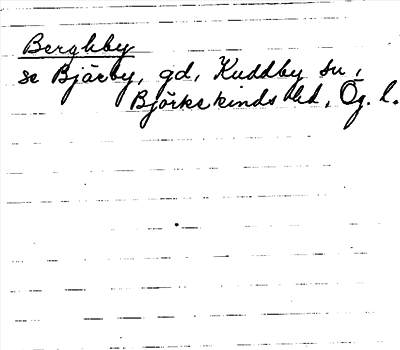 Berghby
se Bjärby, gd, Kuddby sn,
Björkekinds hd, Ög. l.